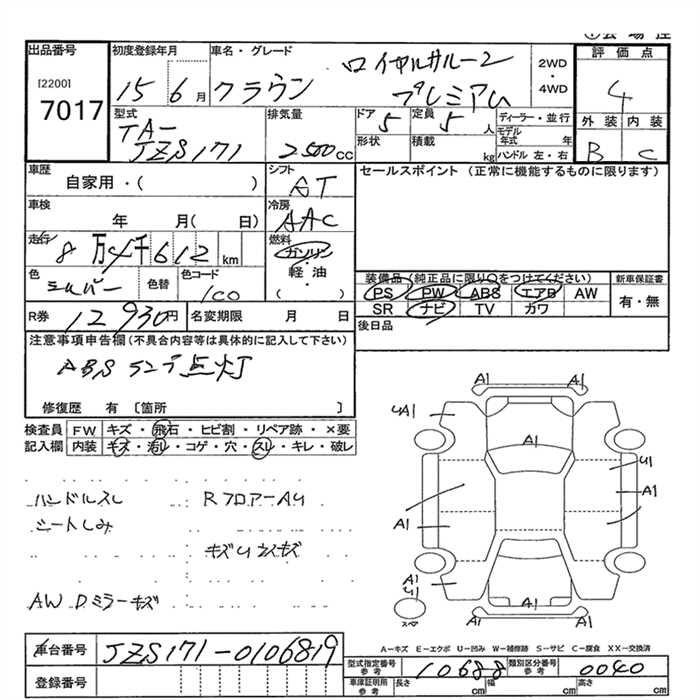 出品番号 初度登録年月 車名・グレード
評価点
[2200]
7017
15 6月 クラウン
ロイヤルサルーン
プレミアム
2WD
・
4WD
4
型式 排気量 ドア 定員
外装 内装
TA-
JZS171
2500CC
5 5人
ディーラー・並行
モデル年式 年
形状 積載 kg ハンドル 左・右
B C
車歴 シフト セールスポイント (正常に機能するものに限ります)
自家用・( )
AT
車検 冷房
年 月( 日)
AAC
走行 燃料
8万4千612km
ガソリン
・
軽・油
・
( )
色 色替 色コード
シルバー 1C0
装備品(純正品に限り○をつけてください) 新車保証書
PS PW ABS エアB AW 有・無
SR ナビ TV カワ
R券 12930円 名変期限 月 日
後日品
注意事項申告欄(不具合内容等は具体的に記入して下さい)
ABS ランプ点灯
修復歴 有 〔箇所 〕
検査員 FW キズ・飛石・ヒビ割・リペア跡・×要
記入欄 内装 キズ・汚レ・コゲ・穴・スレ・キレ・破レ
ハンドルスレ
シートしみ
RフロアーAU
AW Dミラーキズ
A1 A1
UA1
A1
U1
A1
A1
A1
U
A1
A1
A-キズ E-エクボ U-凹み W-補修跡 S-サビ C-腐食 XX-交換済
車台番号 JZS171-0106819
登録番号
型式指定番号 参考 10688 類別区分番号 参考 0040
車庫証明用 参考 長さ cm 幅 cm 高さ cm